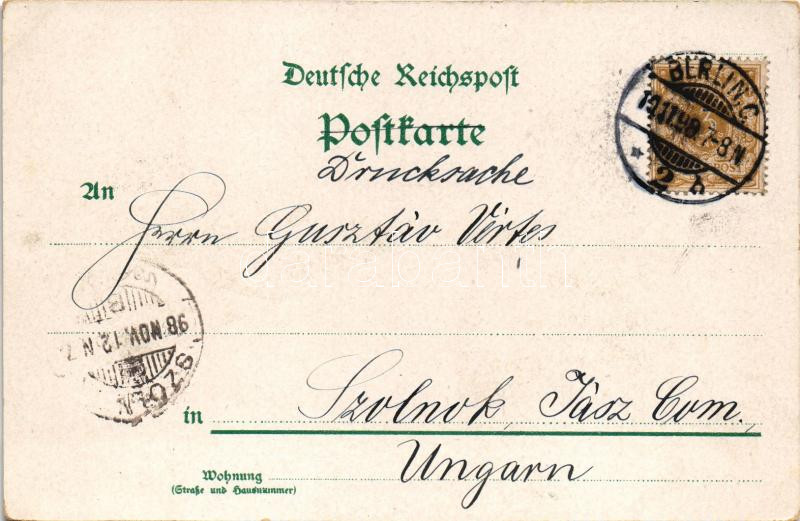 Deutsche Reichspost
Postkarte
Drucksache
An
Herrn Gusztáv Vértes
in
Szolnok, Jász Com.
Ungarn
Wohnung
(Straße und Hausnummer)
BERLIN.C.
10.11.98 7-8 N
* 2 b
98 NOV. 12. N. 7
SZOLN